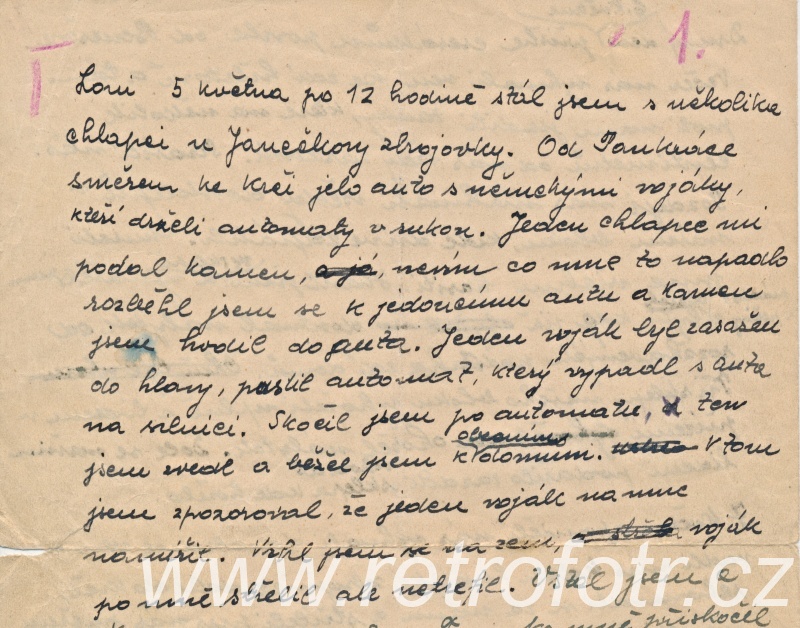 I 1.
Loni 5 května po 12 hodině stál jsem s několika
chlapci u Janečkovy zbrojovky. Od Pankráce
směrem ke Krči jelo auto s německými vojáky,
kteří drželi automaty v rukou. Jeden chlapec mi
podal kamen, a já, nevím co mne to napadlo
rozběhl jsem se k jedoucímu autu a kamen
jsem hodil do auta. Jeden voják byl zasažen
do hlavy, pustil automat, který vypadl s auta
na silnici. Skočil jsem po automatu, ten
obecním
jsem zvedl a běžel jsem k domům. V tom
jsem zpozoroval, že jeden voják na mne
namířil. Vrhl jsem se na zem, voják
po mně střelil ale netrefil. Vstal jsem a
ke mně přiskočil
www.retrofotr.cz